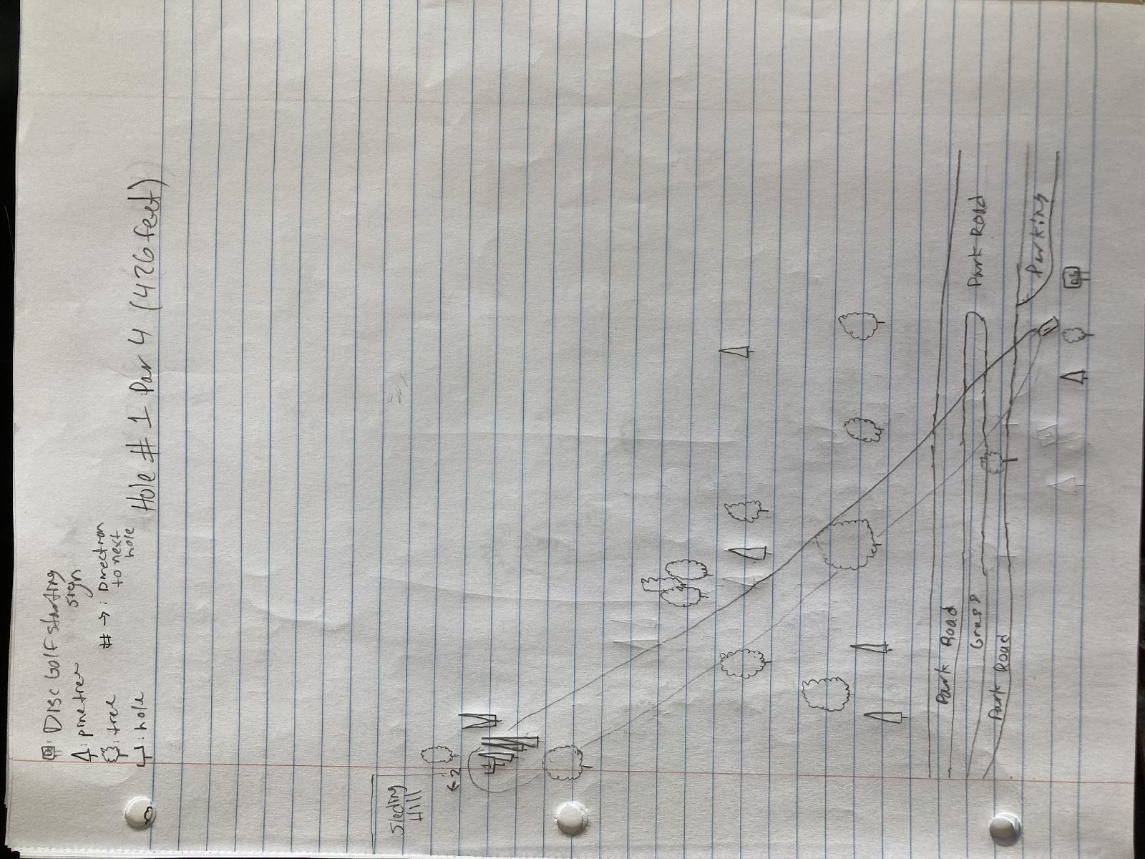 DG: Disc Golf starting sign
: pine tree
: tree
: hole
# →: Direction
to next
hole
Hole # 1 Par 4 (426 feet)
Sleding
Hill
← 2
Park Road
Grass
Park Road
Park Road
Parking
DG